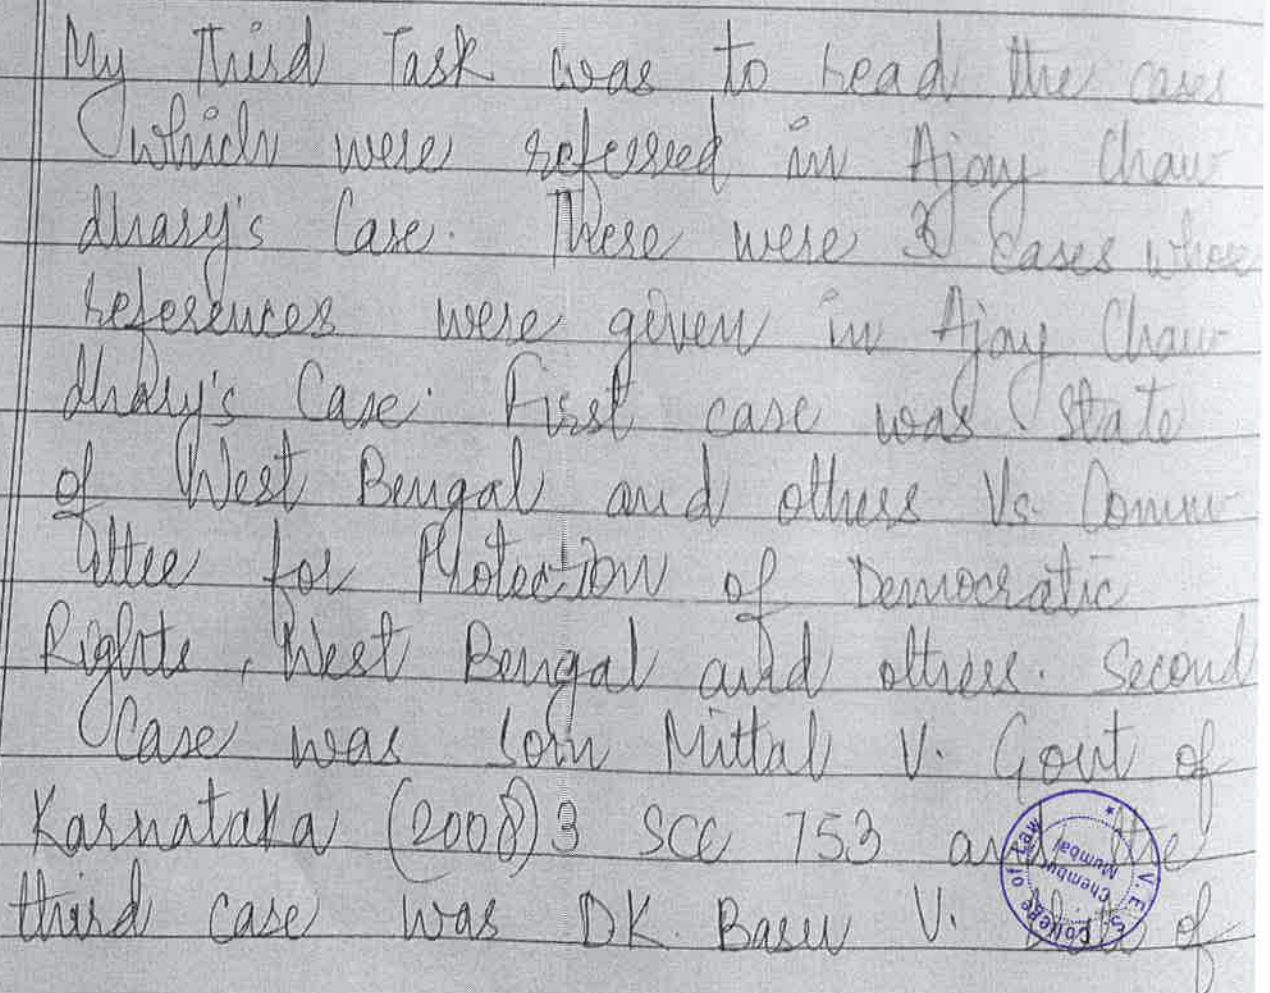 My third Task was to read the cases
which were referred in Ajay Chau-
dhary's Case. There were 3 Cases whose
references were given in Ajay Chau-
dhary's Case. First case was State
of West Bengal and others Vs. Comm-
ittee for Protection of Democratic
Rights, West Bengal and others. Second
Case was Som Mittal V. Govt of
Karnataka (2008) 3 SCC 753 and the
third case was DK Basu V. State of
V. E. S. College of Law
Chembur
Mumbai